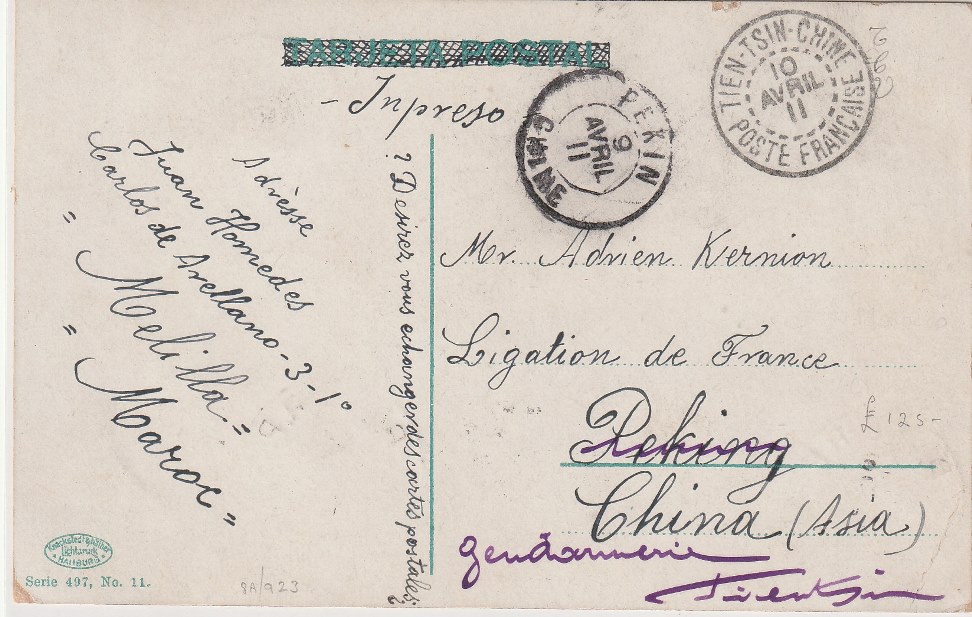 TARJETA POSTAL
- Inpreso
PEKIN
9
AVRIL
11
CHINE
TIEN-TSIN-CHINE
10
AVRIL
11
POSTE FRANÇAISE
Adrèsse
Juan Homedes
Carlos de Arellano-3-1º
= Melilla =
= Maroc =
? Desirez vous echanger des cartes postales?
Mr. Adrien Kernion
Ligation de France
Peking
China (Asia)
gendarmerie
Tientsin
£125-
Knackstedt & Näther
Lichtdruck
HAMBURG
Serie 497, No. 11.
8A/923